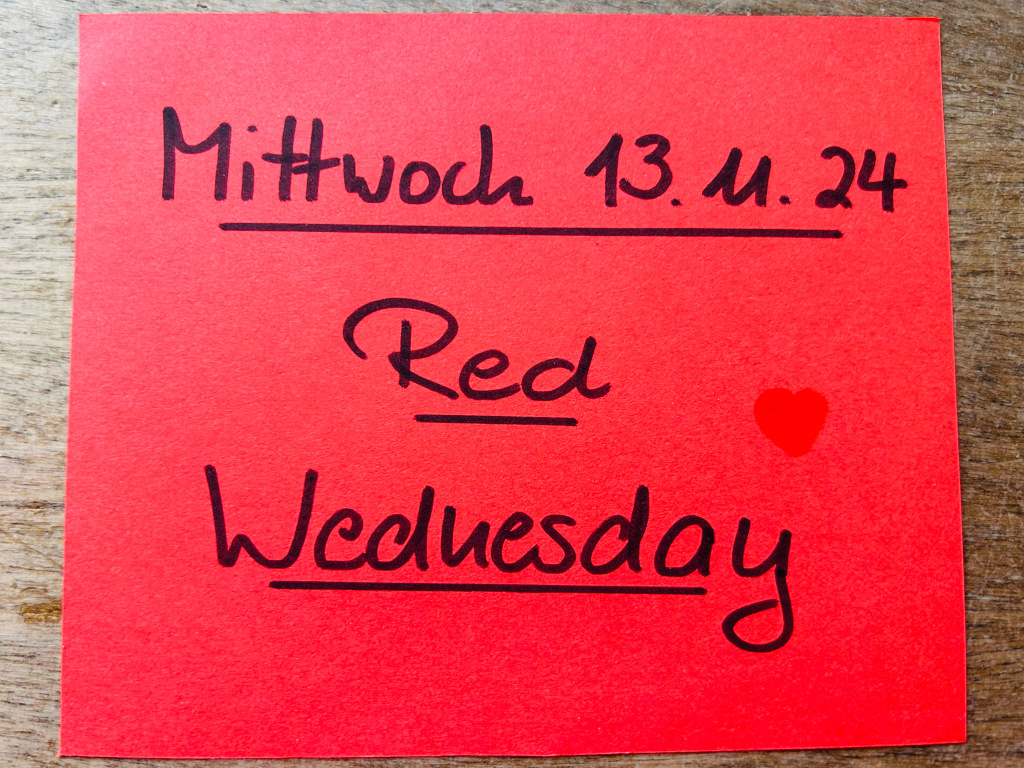 Mittwoch 13.11.24
Red
Wednesday